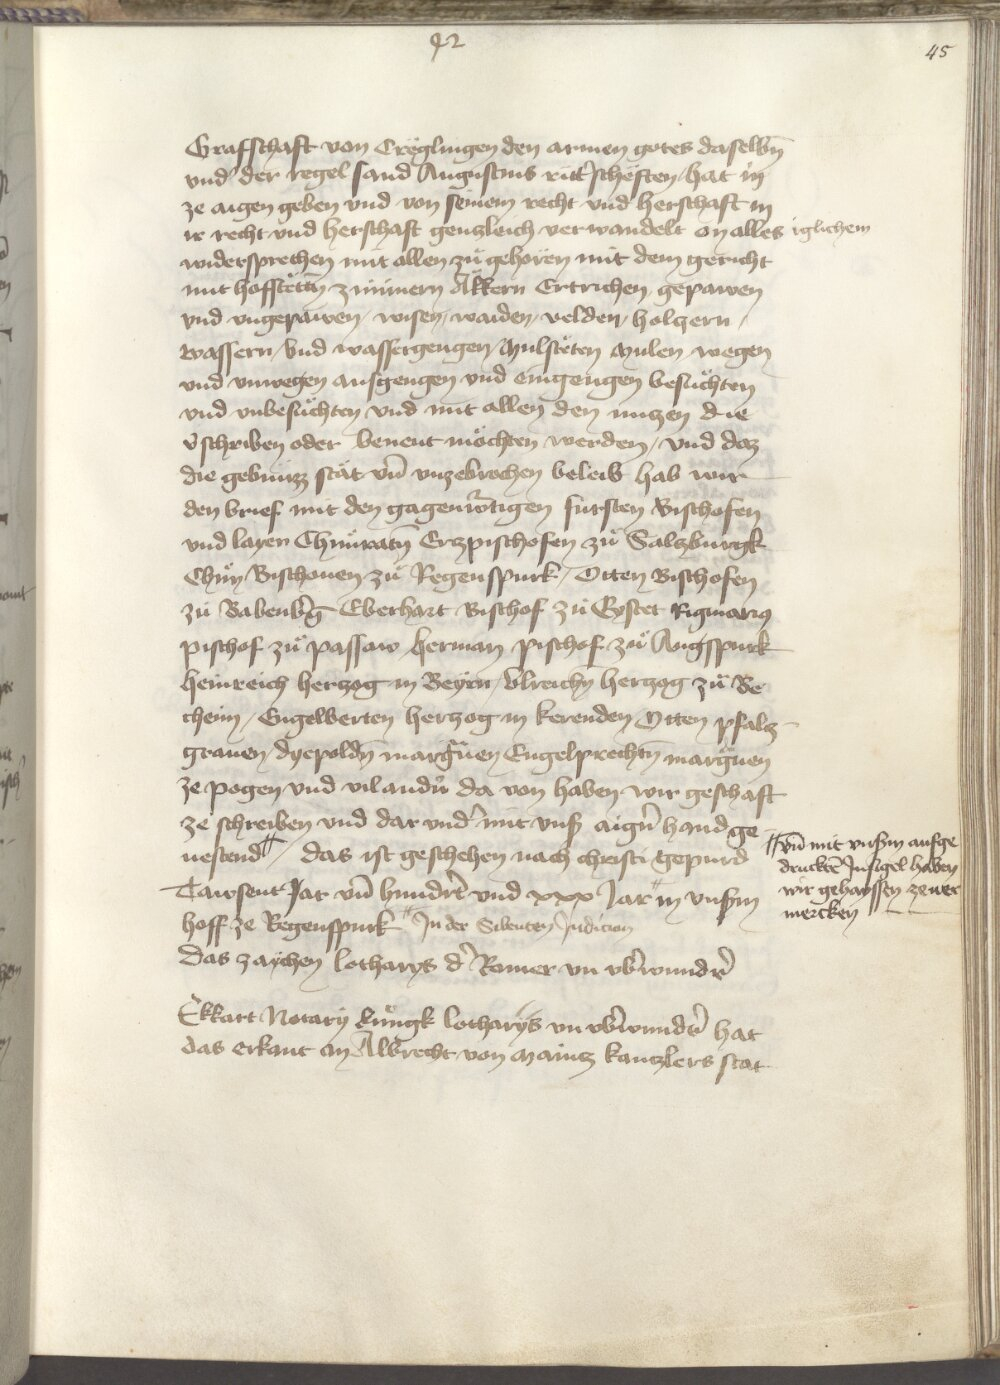 42
45
Grafschaft von Creglingen den armen gotes daselbn̄
vnd der regel sand Augustins ritt̓scheften hat in
ze aigen geben vnd von seinem recht vnd herschaft in
ir recht vnd herschaft genzleich verwandelt on alles iglichem
widersprechen mit allen zugehoren mit dem gericht
mit hofstetn̄ zimmern Äkkern Ertrichen gepawen
vnd vngepawen / wisen / waiden / velden / holczern /
wassern / vnd wassergengen / Mulsteten Mulen wegen
vnd vnwegen ausgengen vnd eingengen besuchten
vnd vnbesuchten vnd mit allen den nuczen die
v̓schriben oder benent mochten werden / vnd daz
die stät vn̄ vnzebrochen beleib hab wir
den brief mit den fursten Bischofen
vnd layen Chunratn̄ Erzpischofen zu Salzburgk
Chun Bischouen zu Regenspurk / Otten Bischofen
zu Babenb̓g Eberhart Bischof zu Eystet
pischof zu passaw herman pischof zu Augspurk
heinreich herzog in Beyrn / Vlreichn̄ herzog zu Be
cheim / Engelberten herzog in kerenden / Otten pfalz
grauen dyepoldn̄ Engelprechtn̄
ze pogen vnd vil and̓n̄ da von haben wir geschaft
ze schreiben vnd dar vnd̓ mit vnsn̄ aign̄ hand ge
uestend // das ist geschehen nach christi gepurd
// vn̄ mit vnsm̄ aufge
druckte Insigel haben
wir gehayssen ze uer
mercken
Tawsent Jar vn̄ hundr̓t vnd xxx Jar in vnsm̄
hoff ze Regenspurk In der Sibenten Indicion
Das zaychen lotharys d̓ Romer vn vb̓wundr̓
Ekkart Notary kungk lotharys vn vb̓wundr̓ hat
das erkant an Albrecht von Maincz kanczlers stat